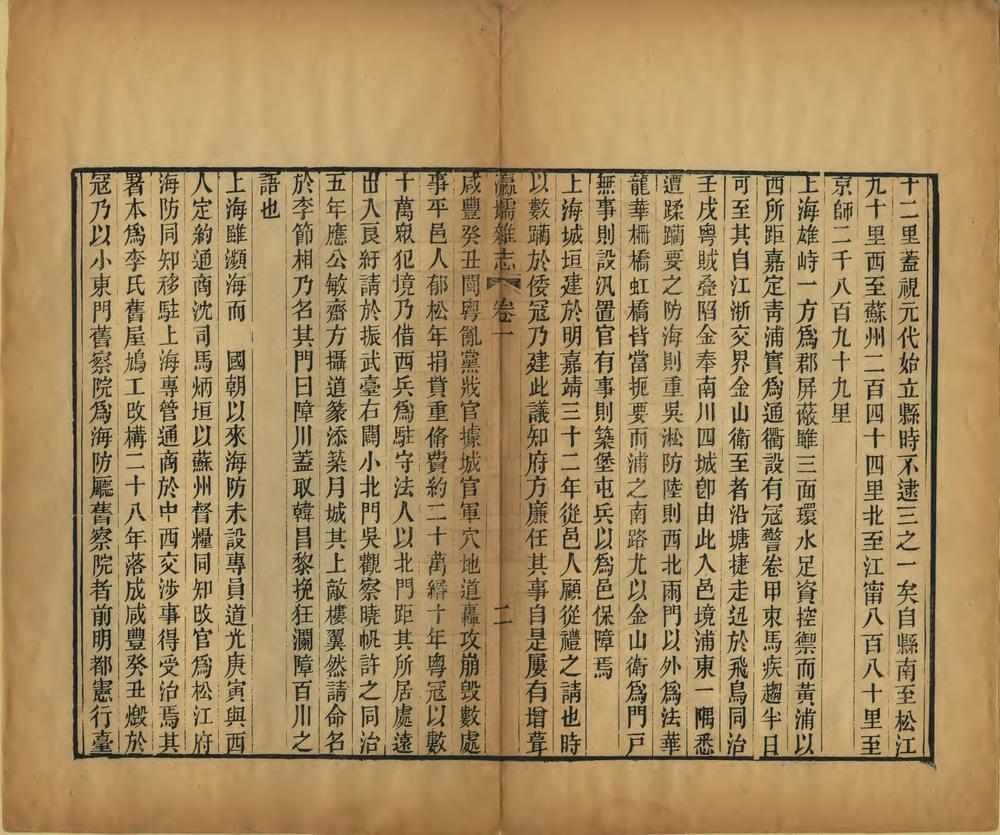 十二里蓋視元代始立縣時不逮三之一矣自縣南至松江
九十里西至蘇州二百四十四里北至江甯八百八十里至
京師二千八百九十九里
上海雄峙一方爲郡屏蔽雖三面環水足資控禦而黃浦以
西所距嘉定青浦實爲通衢設有寇警卷甲束馬疾趨半日
可至其自江浙交界金山衛至者沿塘捷走迅於飛鳥同治
壬戌粵賊叠陷金奉南川四城卽由此入邑境浦東一隅悉
遭蹂躪要之防海則重吳淞防陸則西北兩門以外爲法華
龍華柵橋虹橋皆當扼要而浦之南路尤以金山衛爲門戸
無事則設汛置官有事則築堡屯兵以爲邑保障焉
上海城垣建於明嘉靖三十二年從邑人顧從禮之請也時
以數躪於倭寇乃建此議知府方廉任其事自是屢有增葺
瀛壖雜志 卷一 二
咸豐癸丑閩粵亂黨戕官據城官軍穴地道轟攻崩毀數處
事平邑人郁松年捐貲重脩費約二十萬緡十年粵寇以數
十萬眾犯境乃借西兵爲駐守法人以北門距其所居處遠
出入艮紆請於振武臺右闢小北門吳觀察曉帆許之同治
五年應公敏齋方攝道篆添築月城其上敵樓翼然請命名
於李節相乃名其門曰障川蓋取韓昌黎挽狂瀾障百川之
語也
上海雖瀕海而 國朝以來海防未設專員道光庚寅與西
人定約通商沈司馬炳垣以蘇州督糧同知改官爲松江府
海防同知移駐上海專管通商於中西交涉事得受治焉其
署本爲李氏舊屋鳩工改構二十八年落成咸豐癸丑燬於
寇乃以小東門舊察院爲海防廳舊察院者前明都憲行臺